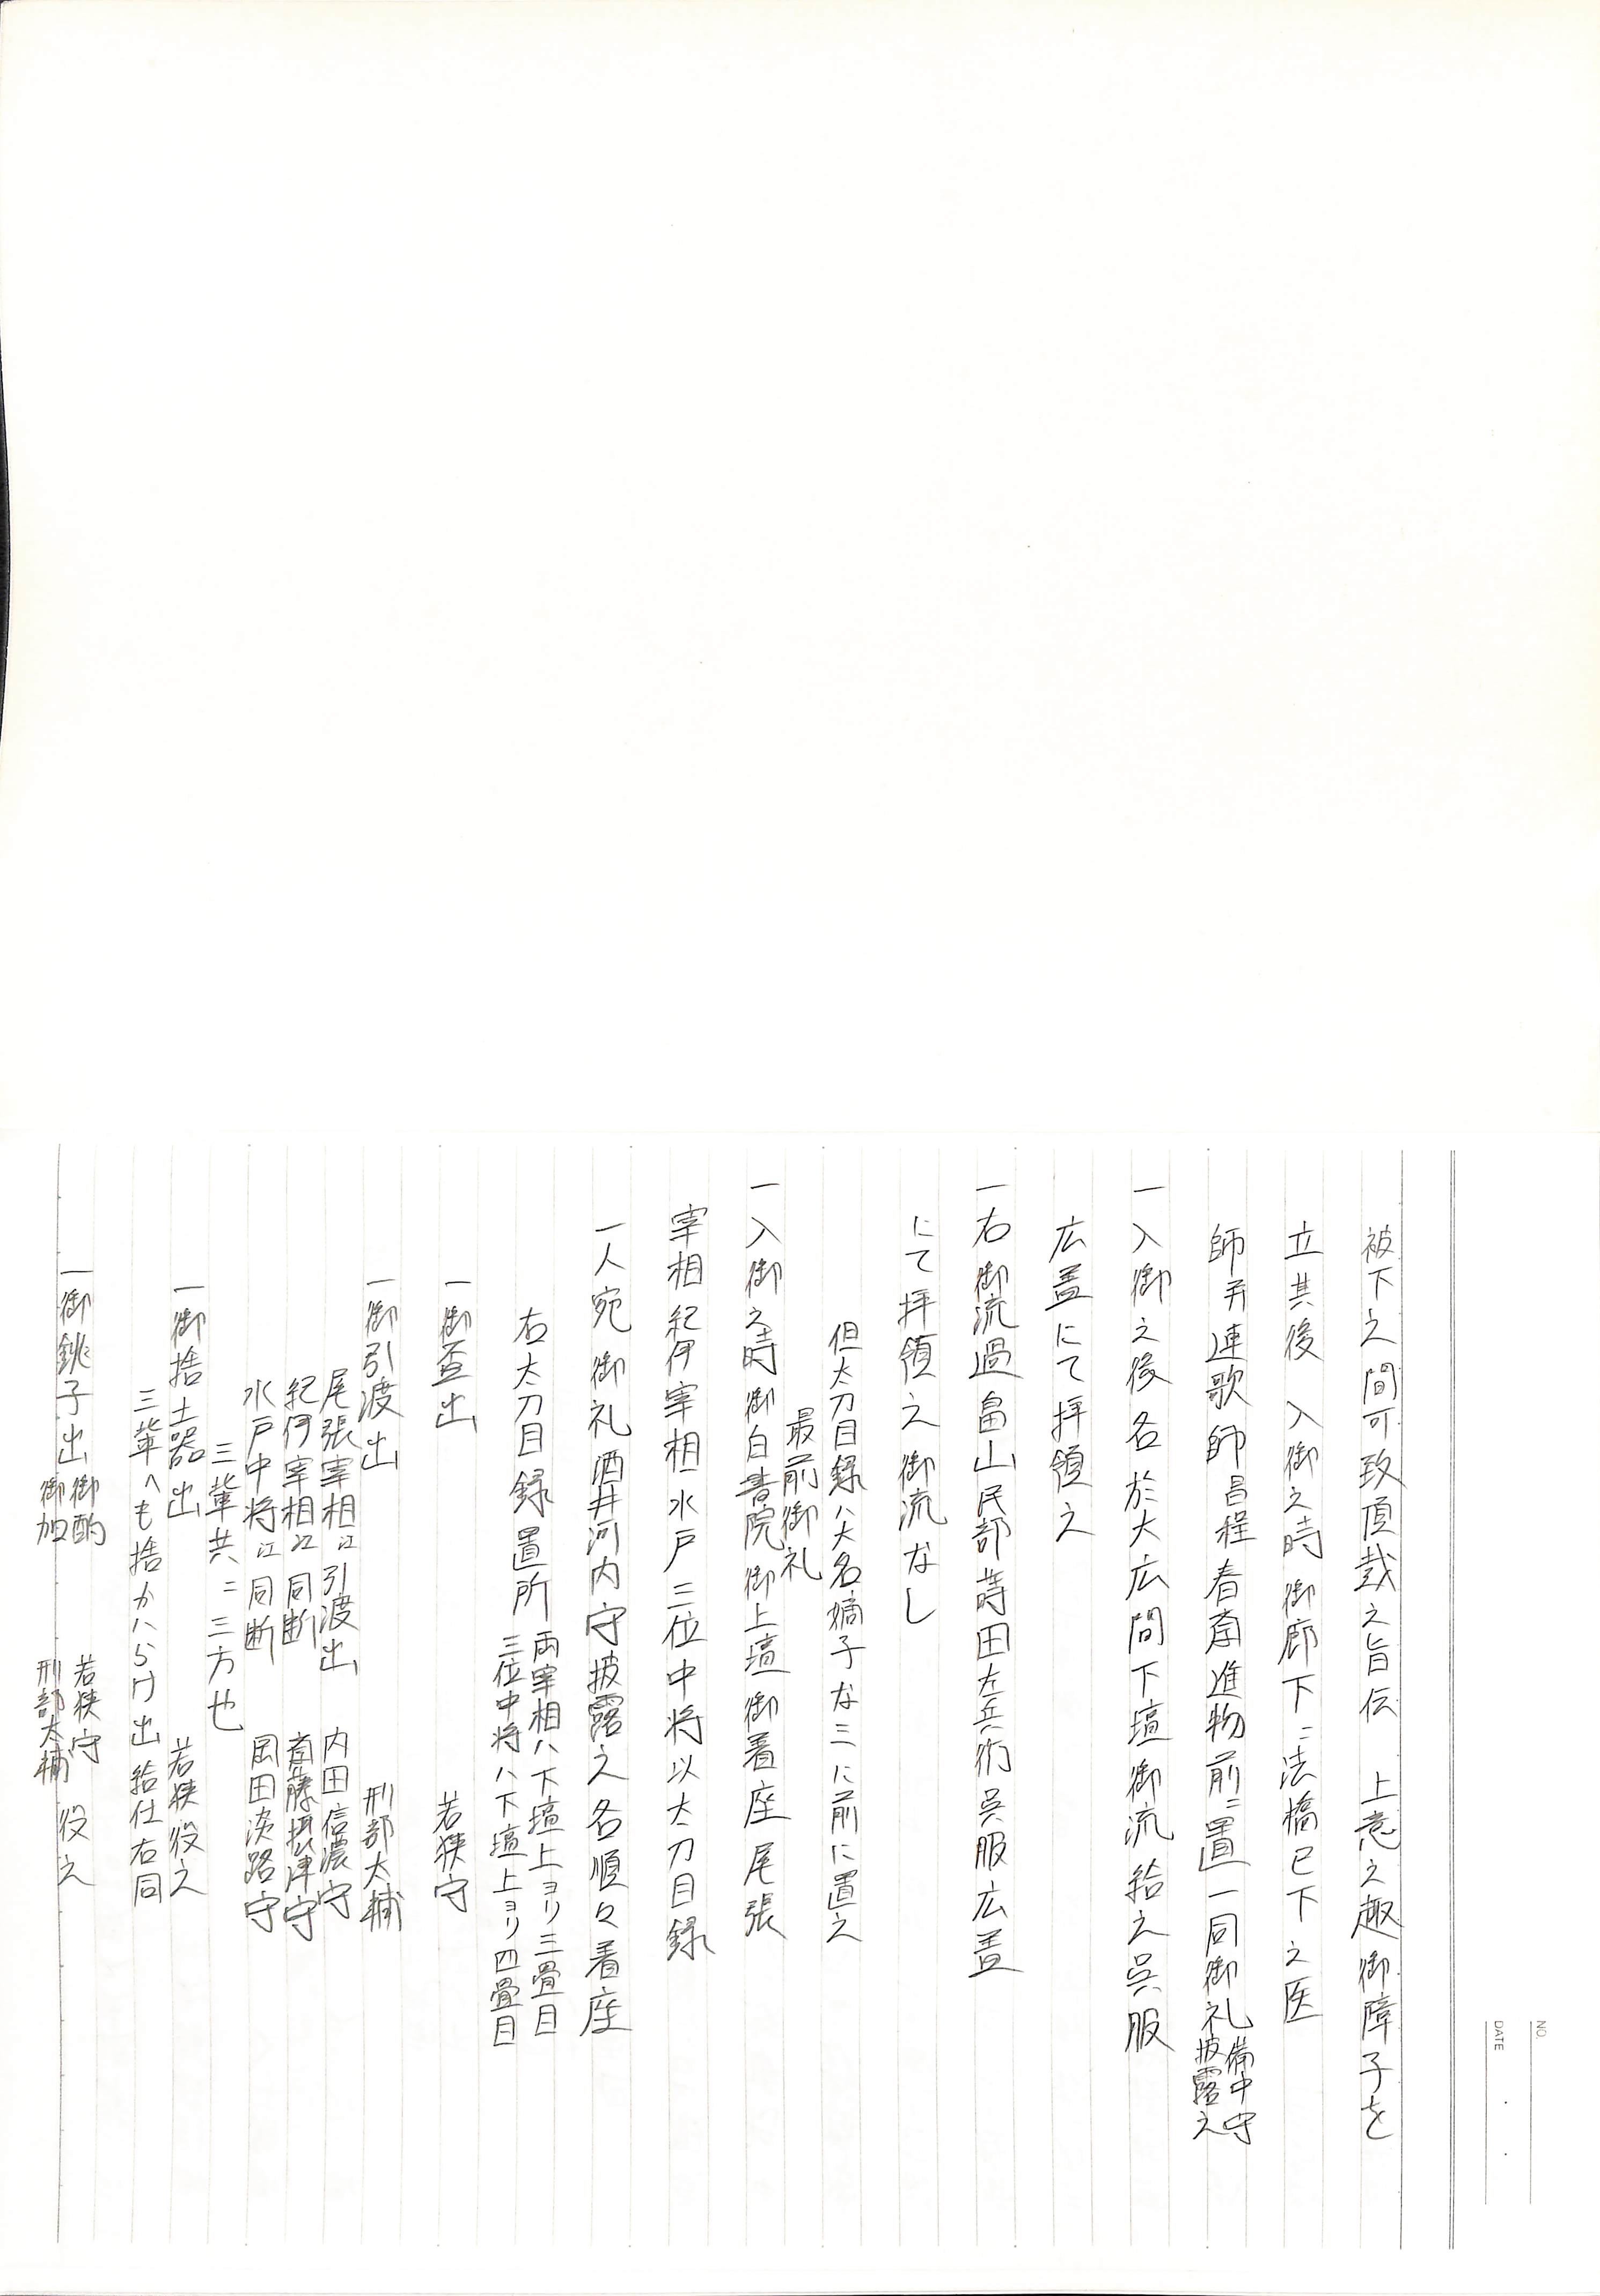 NO.
DATE
被下之間可致頂戴之旨伝 上意之趣御障子を
立其後 入御之時御廊下ニ法橋已下之医
師并連歌師昌程春斎進物前ニ置一同御礼備中守
披露之
一入御之後各於大広間下壇御流給之呉服
広蓋にて拝領之
一右御流過畠山民部蒔田左兵衛呉服広蓋
にて拝領之御流なし
但太刀目録ハ大名嫡子な三に前に置之
最前御礼
一入御之時御白書院御上壇御着座尾張
宰相紀伊宰相水戸三位中将以太刀目録
一人宛御礼酒井河内守披露之各順々着座
右太刀目録置所両宰相ハ下壇上ヨリ三畳目
三位中将ハ下壇上ヨリ四畳目
一御盃出 若狭守
一御引渡出 刑部大輔
尾張宰相江引渡出 内田信濃守
紀伊宰相江同断 斎藤摂津守
水戸中将江同断 岡田淡路守
三輩共ニ三方也
一御捨土器出 若狭役之
三輩へも捨かハらけ出給仕右同
一御銚子出御酌 若狭守
御加 刑部大輔 役之